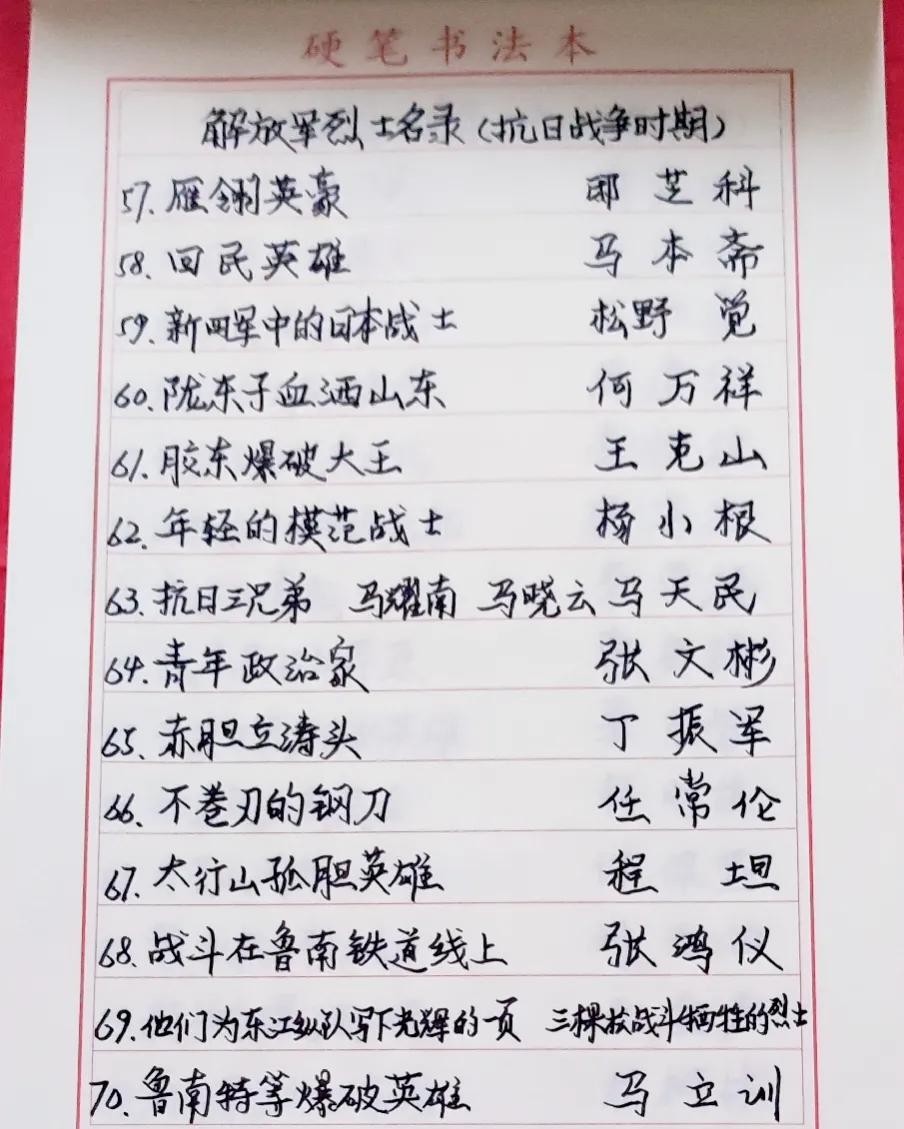 硬笔书法本
解放军烈士名录(抗日战争时期)
57.雁翎英豪 邵芝科
58、回民英雄 马本斋
59、新四军中的日本战士 松野觉
60、陇东子血洒山东 何万祥
61、胶东爆破大王 王克山
62、年轻的模范战士 杨小根
63、抗日三兄弟 马耀南 马晓云 马天民
64、青年政治家 张文彬
65、赤胆立涛头 丁振军
66、不卷刃的钢刀 任常伦
67、太行山孤胆英雄 程坦
68、战斗在鲁南铁道线上 张鸿仪
69、他们为东江纵队写下光辉的一页 三棵松战斗牺牲的烈士
70、鲁南特等爆破英雄 马立训